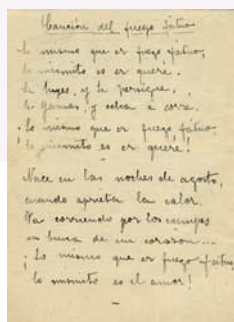 Canción del fuego fatuo
Lo mismo que er fuego fátuo,
lo mismito es er queré.
Le huyes, y te persigue,
le yamas, y echa a corré.
¡Lo mismo que er fuego fatuo
lo mismito es er queré!
Nace en las noches de agosto,
cuando aprieta la calor.
Va corriendo por los campos
en busca de un corazón...
¡Lo mismo que er fuego fatuo,
lo mismito es el amor!